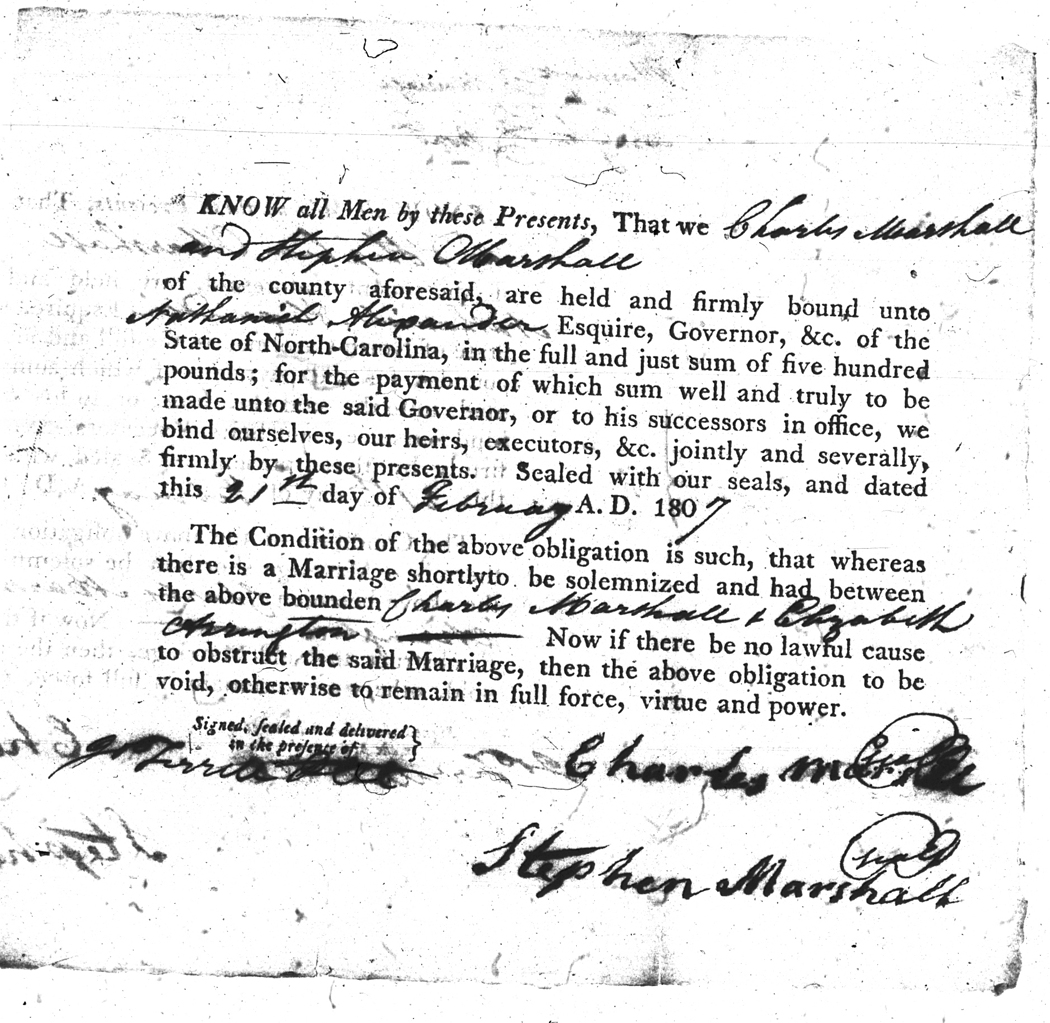 KNOW all Men by these Presents, That we Charles Marshall
and Stephen Marshall
of the county aforesaid, are held and firmly bound unto
Nathaniel Alixander Esquire, Governor, &c. of the
State of North-Carolina, in the full and just sum of five hundred
pounds; for the payment of which sum well and truly to be
made unto the said Governor, or to his successors in office, we
bind ourselves, our heirs, executors, &c. jointly and severally,
firmly by these presents. Sealed with our seals, and dated
this 21th day of February A. D. 1807
The Condition of the above obligation is such, that whereas
there is a Marriage shortlyto be solemnized and had between
the above bounden Charles Marshall & Elizabeth
Arrington Now if there be no lawful cause
to obstruct the said Marriage, then the above obligation to be
void, otherwise to remain in full force, virtue and power.
Signed, sealed and delivered
in the presence of
Charles Marshall
Seal
Stephen Marshall
Seal